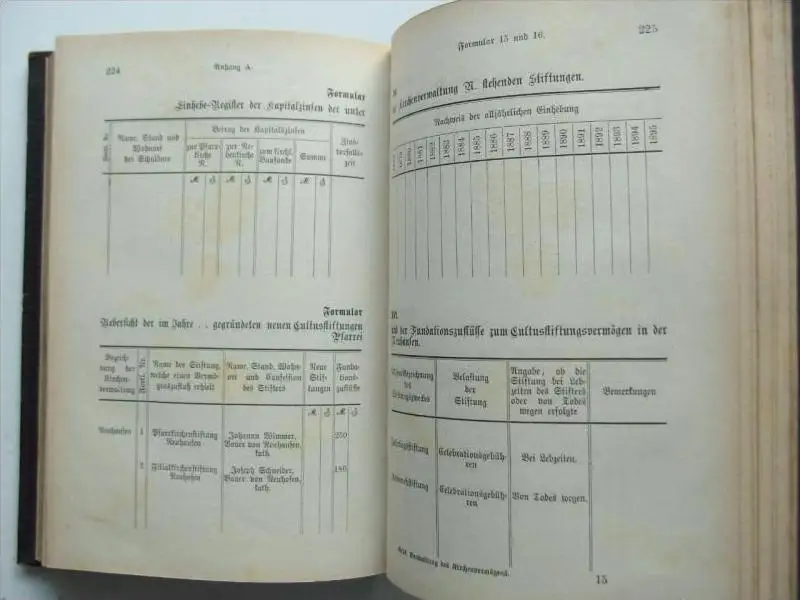 224
Anhang A.
Formular
Einhebe-Register der Kapitalzinsen der unter
Name, Stand und
Wohnort
des Schuldners
Betrag der Kapitalzinsen
zur Pfarr-
kirche
N.
zur Ne-
benkirche
N.
zum Kirchl.
Baufonde
Summe
Zins-
verfalls-
zeit
ℳ ₰ ℳ ₰ ℳ ₰ ℳ ₰
Formular
Uebersicht der im Jahre . . gegründeten neuen Cultusstiftungen
Pfarrei
Bezeich-
nung der
Kirchen-
verwaltung
Fortl. Nr.
Name der Stiftung,
welche einen Vermö-
genszufluß erhielt
Name, Stand, Wohn-
ort und Confession
des Stifters
Neue
Stif-
tungen
Funda-
tions-
zuflüsse
ℳ ₰ ℳ ₰
Neuhausen
1
Pfarrkirchenstiftung
Neuhausen
Johann Wimmer,
Bauer von Neuhausen,
kath.
250
2
Filialkirchenstiftung
Neuhofen
Joseph Schneider,
Bauer von Neuhofen,
kath.
180
Formular 15 und 16.
225
Kirchenverwaltung N. stehenden Stiftungen.
Nachweis der alljährlichen Einhebung
1881 1882 1883 1884 1885 1886 1887 1888 1889 1890 1891 1892 1893 1894 1895
der Fundationszuflüsse zum Cultusstiftungsvermögen in der
Neuhausen.
Belastung
der
Stiftung
Angabe, ob die
Stiftung bei Leb-
zeiten des Stifters
oder von Todes
wegen erfolgte
Bemerkungen
Celebrationsgebüh-
ren
Bei Lebzeiten.
Celebrationsgebüh-
ren
Von Todes wegen.
Verwaltung des Kirchenvermögens.
15